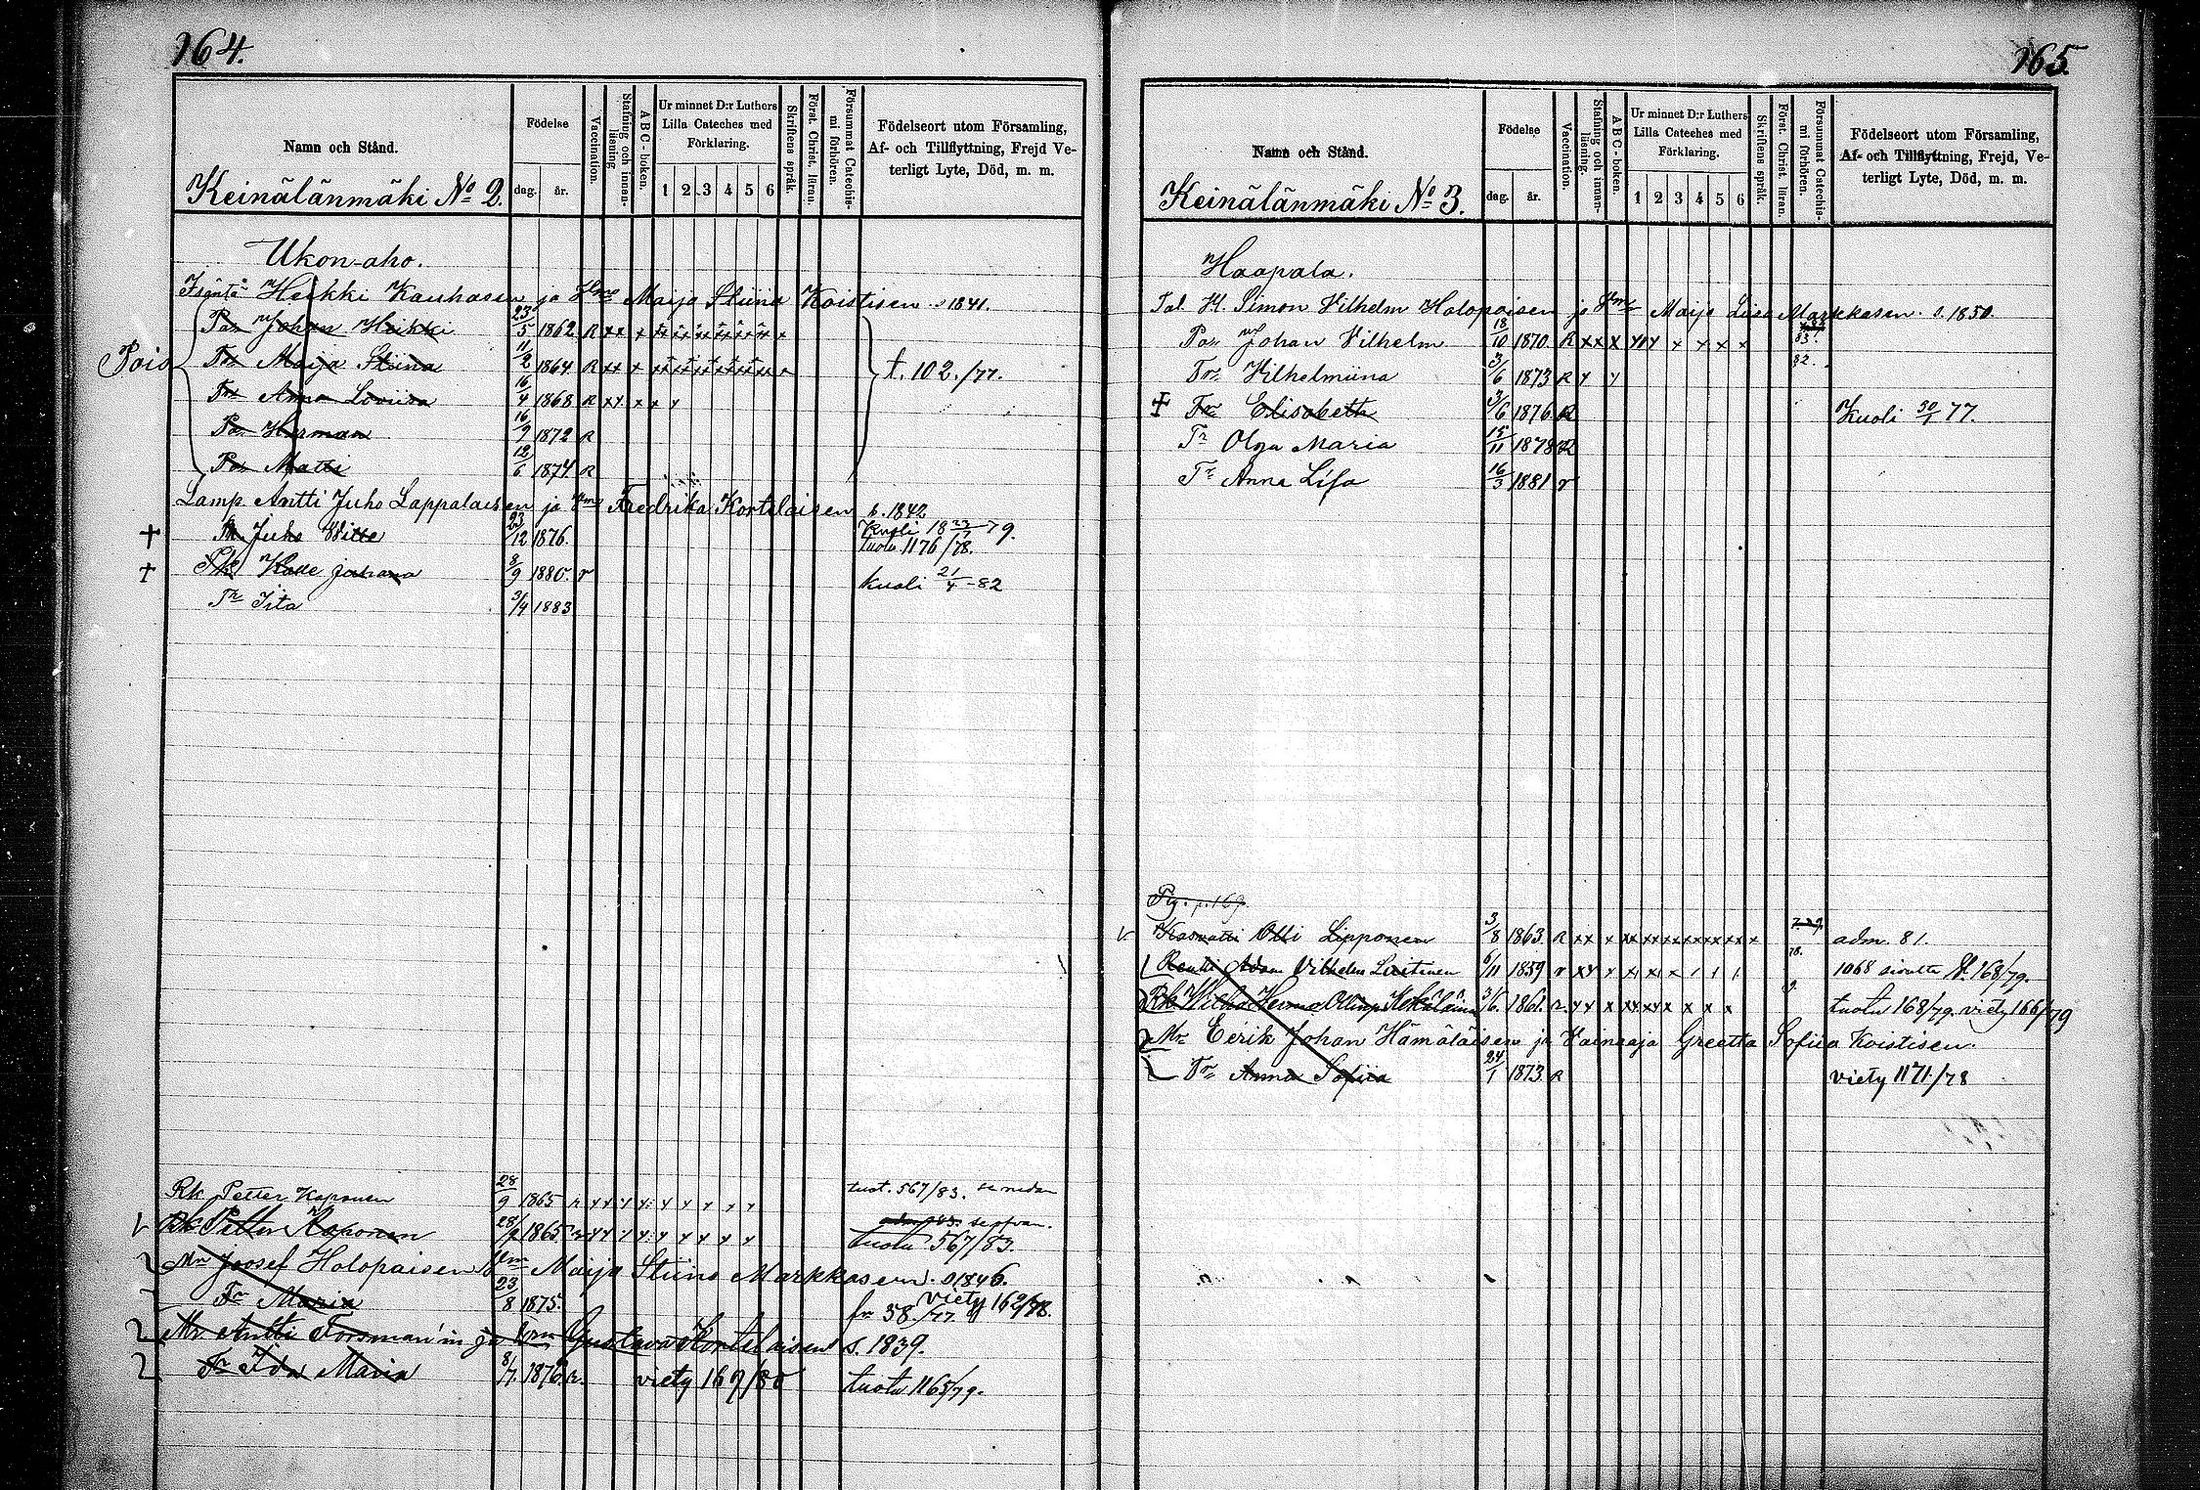 164.
Namn och Stånd.
Födelse
dag.
år.
Vaccination.
Stafning och innan-läsning.
ABC-boken.
Ur minnet D:r Luthers Lilla Cateches med Förklaring.
1 2 3 4 5 6
Skriftens språk.
Först. Christ. läran.
Försummat Catechismi förhören.
Födelseort utom Församling, Af- och Tillflyttning, Frejd Veterligt Lyte, Död, m. m.
Keinälänmäki No 2.
Ukon-aho.
Isäntä Heikki Kauhasen ja Vmo Maija Stiina Koistisen s 1841.
Po. Johan Heikki 23/5 1862 R
Pois
Tr. Maija Stiina 11/2 1864 R
t. 102./77.
Tr. Anna Loviisa 16/4 1868 R
Po. Herman 16/9 1872 R
Po. Matti 12/6 1874 R
Lamp. Antti Juho Lappalaisen ja Vmo Fredrika Kortelaisen s. 1842
Juho Wille 23/12 1876. Kuoli 79.
tuotu 1176/78.
Kalle Johana 8/9 1880. r kuoli 21/4 -82
Tr Iita 3/4 1883
Rk Petter Koponen 28/9 1865 r tuot. 567/83. se nedan
Rk Petter Koponen 28/9 1865 r
tuotu 567/83.
Mr Josef Holopaisen Vmo Maija Stiina Markkasen. s 1846.
Tr Maria 23/8 1875. fr 58./77. viety 162/78.
Mr Antti Forsman'in ja Vmo Gustava Kortelaisen s. 1839.
Tr Ida Maria 8/7. 1876 r. viety 169/80 tuotu 1165/79.
165.
Namn och Stånd.
Födelse
dag.
år.
Vaccination.
Stafning och innan-läsning.
ABC-boken.
Ur minnet D:r Luthers Lilla Cateches med Förklaring.
1 2 3 4 5 6
Skriftens språk.
Först. Christ. läran.
Försummat Catechismi förhören.
Födelseort utom Församling, Af- och Tillflyttning, Frejd, Veterligt Lyte, Död, m. m.
Keinälänmäki No 3.
Haapala.
Tal. Simon Vilhelm Holopaisen ja Vmo Maija Lisa Markkasen. s. 1850.
Po. Johan Vilhelm 18/10 1870 R 83.
Tr. Vilhelmiina 3/6 1873 R 82.
Tr Elisabeth 3/6 1876 R Kuoli 77.
Tr Olga Maria 15/11 1878 R
Tr Anna Lisa 16/3 1881 r
p. 169.
Kasvatti Olli Lipponen 3/8 1863. R adm. 81.
Renki Adam Vilhelm Luitunen 6/11 1859 r 78. 1068 168/79.
3/6. 1861. r. tuotu 168/79. viety 166/79
Mr Eerik Johan Hämäläisen ja Vainaaja Greetta Sofiia Koistisen.
Tr Anna Sofiia 24/1 1873. R viety 1171./78